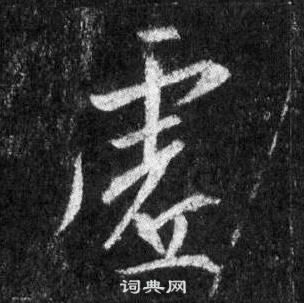 虚
词典网